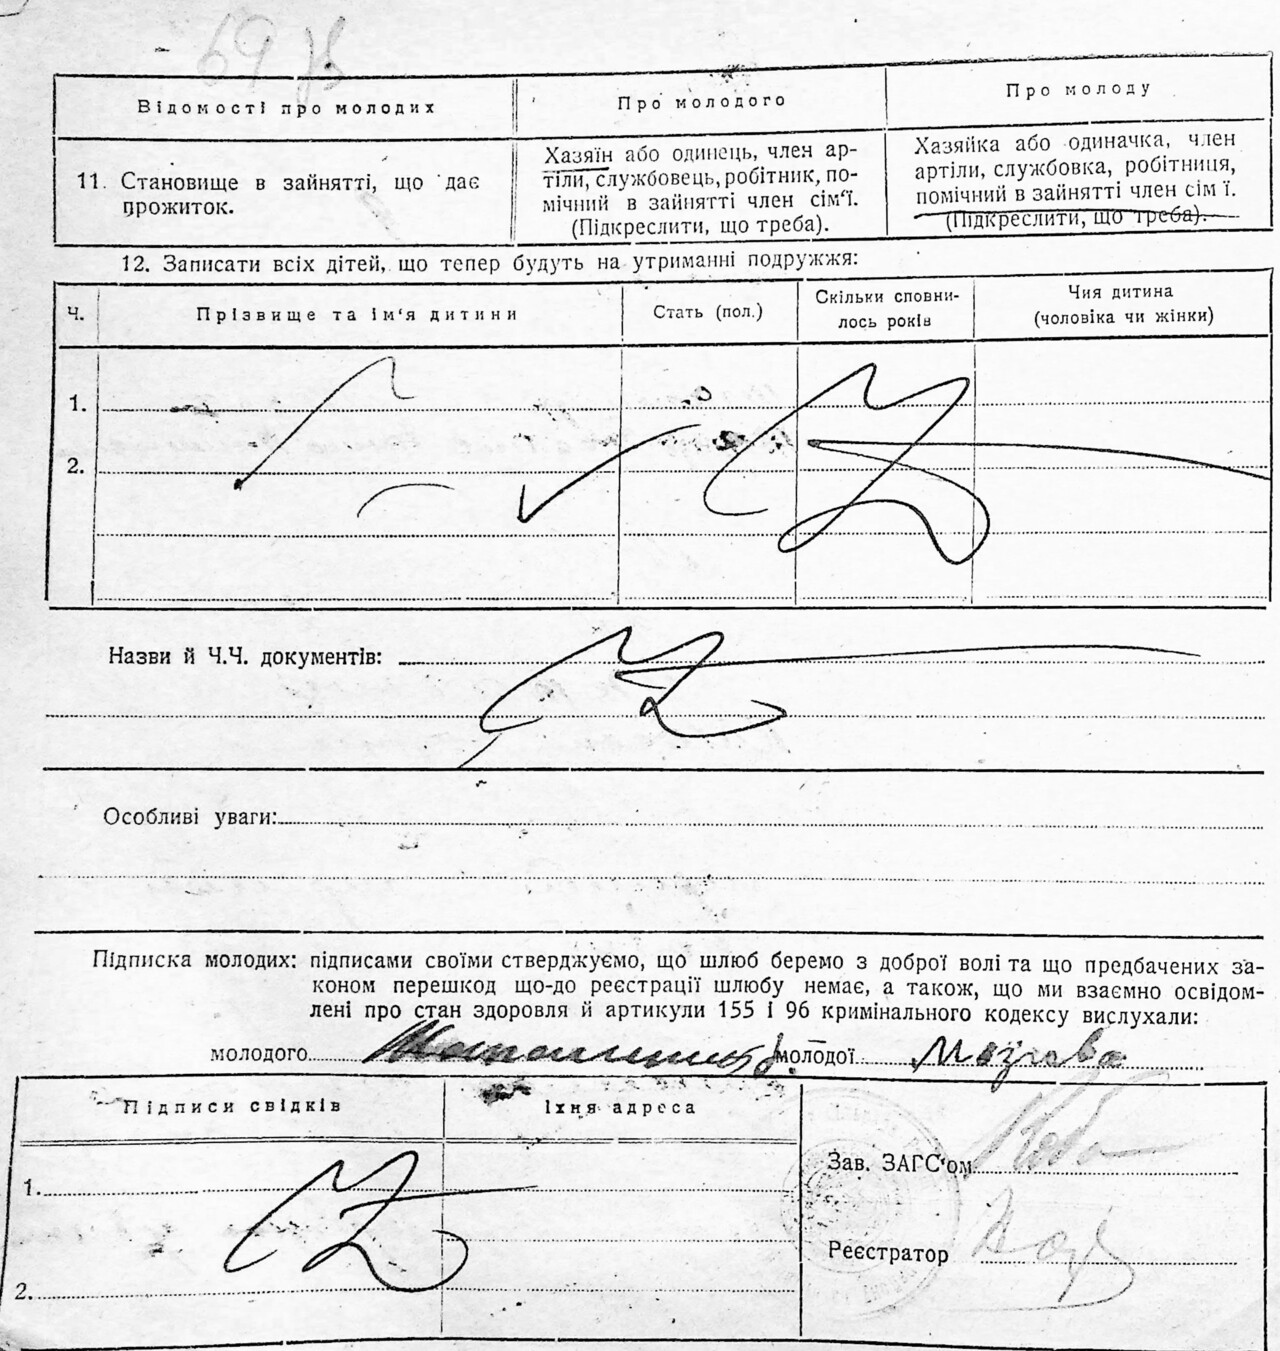 Відомості про молодих
Про молодого
Про молоду
11. Становище в зайнятті, що дає
прожиток.
Хазяїн або одинець, член ар-
тіли, службовець, робітник, по-
мічний в зайнятті член сім'ї.
(Підкреслити, що треба).
Хазяйка або одиначка, член
артіли, службовка, робітниця,
помічний в зайнятті член сім ї.
(Підкреслити, що треба).
12. Записати всіх дітей, що тепер будуть на утриманні подружжя:
Ч.
Прізвище та ім'я дитини
Стать (пол.)
Скільки сповни-
лось років
Чия дитина
(чоловіка чи жінки)
1.
2.
Назви й Ч.Ч. документів:
Особливі уваги:
Підписка молодих: підписами своїми стверджуємо, що шлюб беремо з доброї волі та що предбачених за-
коном перешкод що-до реєстрації шлюбу немає, а також, що ми взаємно освідом-
лені про стан здоровля й артикули 155 і 96 кримінального кодексу вислухали:
молодого молодої
Підписи свідків
Їхня адреса
1.
2.
Зав. ЗАГС'ом
Реєстратор